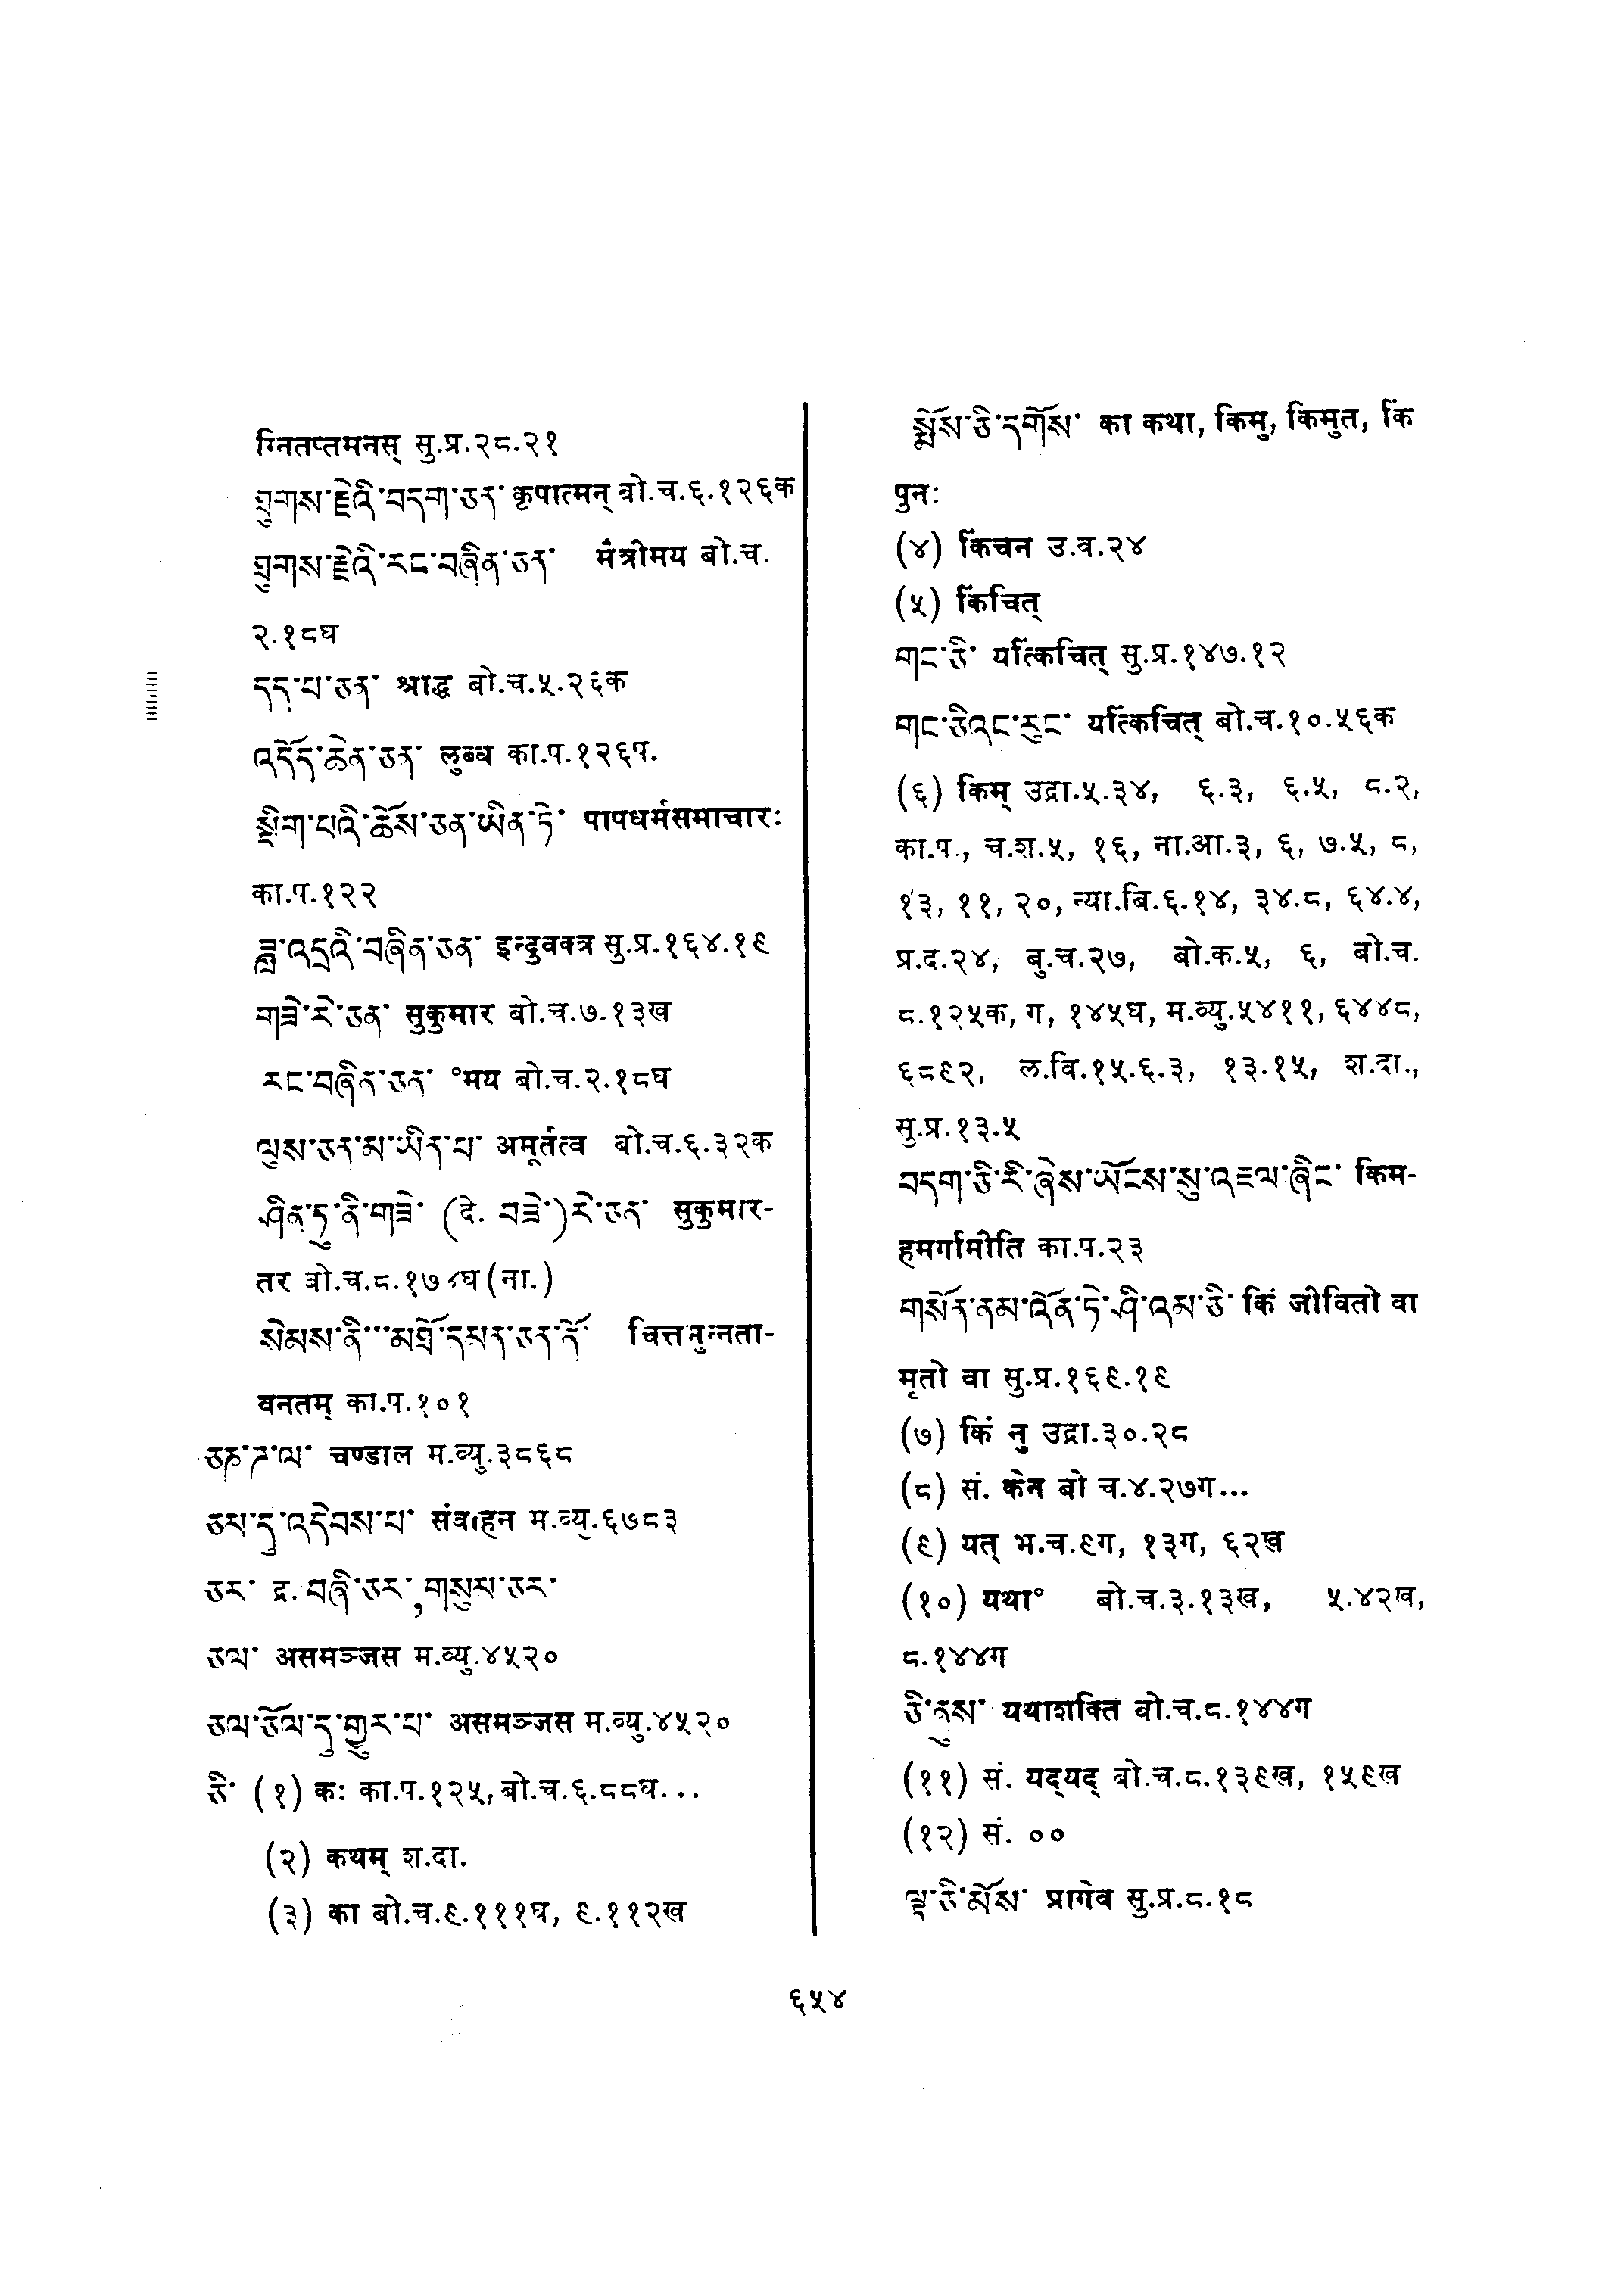 ग्नितप्तमनस् सु.प्र.२८.२१
ཐུགས་རྗེའི་བདག་ཅན་ कृपात्मन् बो.च.६.१२६क
ཐུགས་རྗེའི་རང་བཞིན་ཅན་ मैत्रीमय बो.च.
२.१८घ
དད་པ་ཅན་ श्राद्ध बो.च.५.२६क
འདོད་ཆེན་ཅན་ लुब्ध का.प.१२६प.
སྡིག་པའི་ཆོས་ཅན་ཡིན་ཏེ་ पापधर्मसमाचारः
का.प.१२२
ཟླ་འདྲའི་བཞིན་ཅན་ इन्दुवक्त्र सु.प्र.१६४.१९
གཟེ་རེ་ཅན་ सुकुमार बो.च.७.१३ख
རང་བཞིན་ཅན་ °मय बो.च.२.१८घ
ལུས་ཅན་མ་ཡིན་པ་ अमूर्तत्व बो.च.६.३२क
ཤིན་ཏུ་ནི་གཟེ་ (दे. བཟེ་)རེ་ཅན་ सुकुमार-
तर बो.च.८.१७४घ(ना.)
སེམས་ནི་་་མཐོ་དམན་ཅན་ནོ་ चित्तमुन्नता-
वनतम् का.प.१०१
ཅཎ་ཌ་ལ་ चण्डाल म.व्यु.३८६८
ཅས་དུ་འདེབས་པ་ संवाहन म.व्यु.६७८३
ཅར་ द्र. བཞི་ཅར་, གསུམ་ཅར་
ཅལ་ असमञ्जस म.व्यु.४५२०
ཅལ་ཅོལ་དུ་གྱུར་པ་ असमञ्जस म.व्यु.४५२०
ཅི་ (१) कः का.प.१२५, बो.च.६.८८घ...
(२) कथम् श.दा.
(३) का बो.च.९.१११घ, ९.११२ख
སྨོས་ཅི་དགོས་ का कथा, किमु, किमुत, किं
पुनः
(४) किंचन उ.व.२४
(५) किंचित्
གང་ཅི་ यत्किंचित् सु.प्र.१४७.१२
གང་ཅིའང་རུང་ यत्किंचित् बो.च.१०.५६क
(६) किम् उद्रा.५.३४, ६.३, ६.५, ८.२,
का.प., च.श.५, १६, ना.आ.३, ६, ७.५, ८,
१३, ११, २०, न्या.बि.६.१४, ३४.८, ६४.४,
प्र.द.२४, बु.च.२७, बो.क.५, ६, बो.च.
८.१२५क, ग, १४५घ, म.व्यु.५४११, ६४४८,
६८९२, ल.वि.१५.६.३, १३.१५, श.दा.,
सु.प्र.१३.५
བདག་ཅི་རི་ཞེས་ཡོངས་སུ་འཇལ་ཞིང་ किम-
हमर्गामीति का.प.२३
གསོན་ནམ་འོན་ཏེ་ཤི་འམ་ཅི་ किं जीवितो वा
मृतो वा सु.प्र.१६९.१९
(७) किं नु उद्रा.३०.२८
(८) सं. केन बो च.४.२७ग...
(९) यत् भ.च.९ग, १३ग, ६२ख
(१०) यथा° बो.च.३.१३ख, ५.४२ख,
८.१४४ग
ཅི་ནུས་ यथाशक्ति बो.च.८.१४४ग
(११) सं. यद्यद् बो.च.८.१३९ख, १५९ख
(१२) सं. ००
ལྟ་ཅི་སྨོས་ प्रागेव सु.प्र.८.१८
६५४